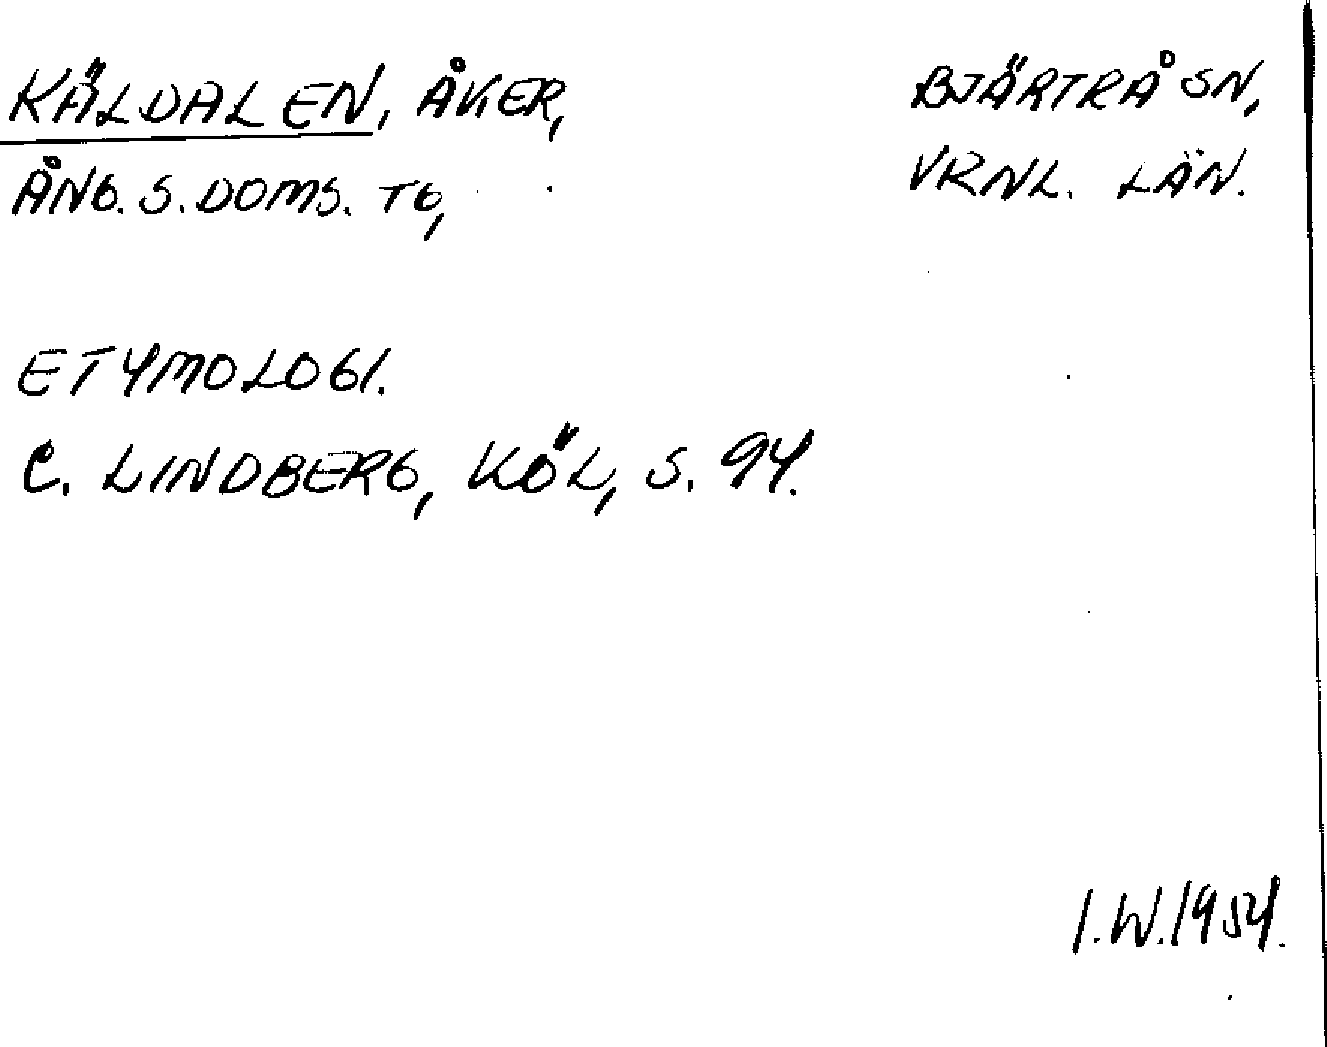 KÄLDALEN, ÅKER,
ÅNG. S. DOMS. TG,
BJÄRTRÅ SN,
VRNL. LÄN.
ETYMOLOGI.
C. LINDBERG, KÖL, S. 94.
I.W. 1954.